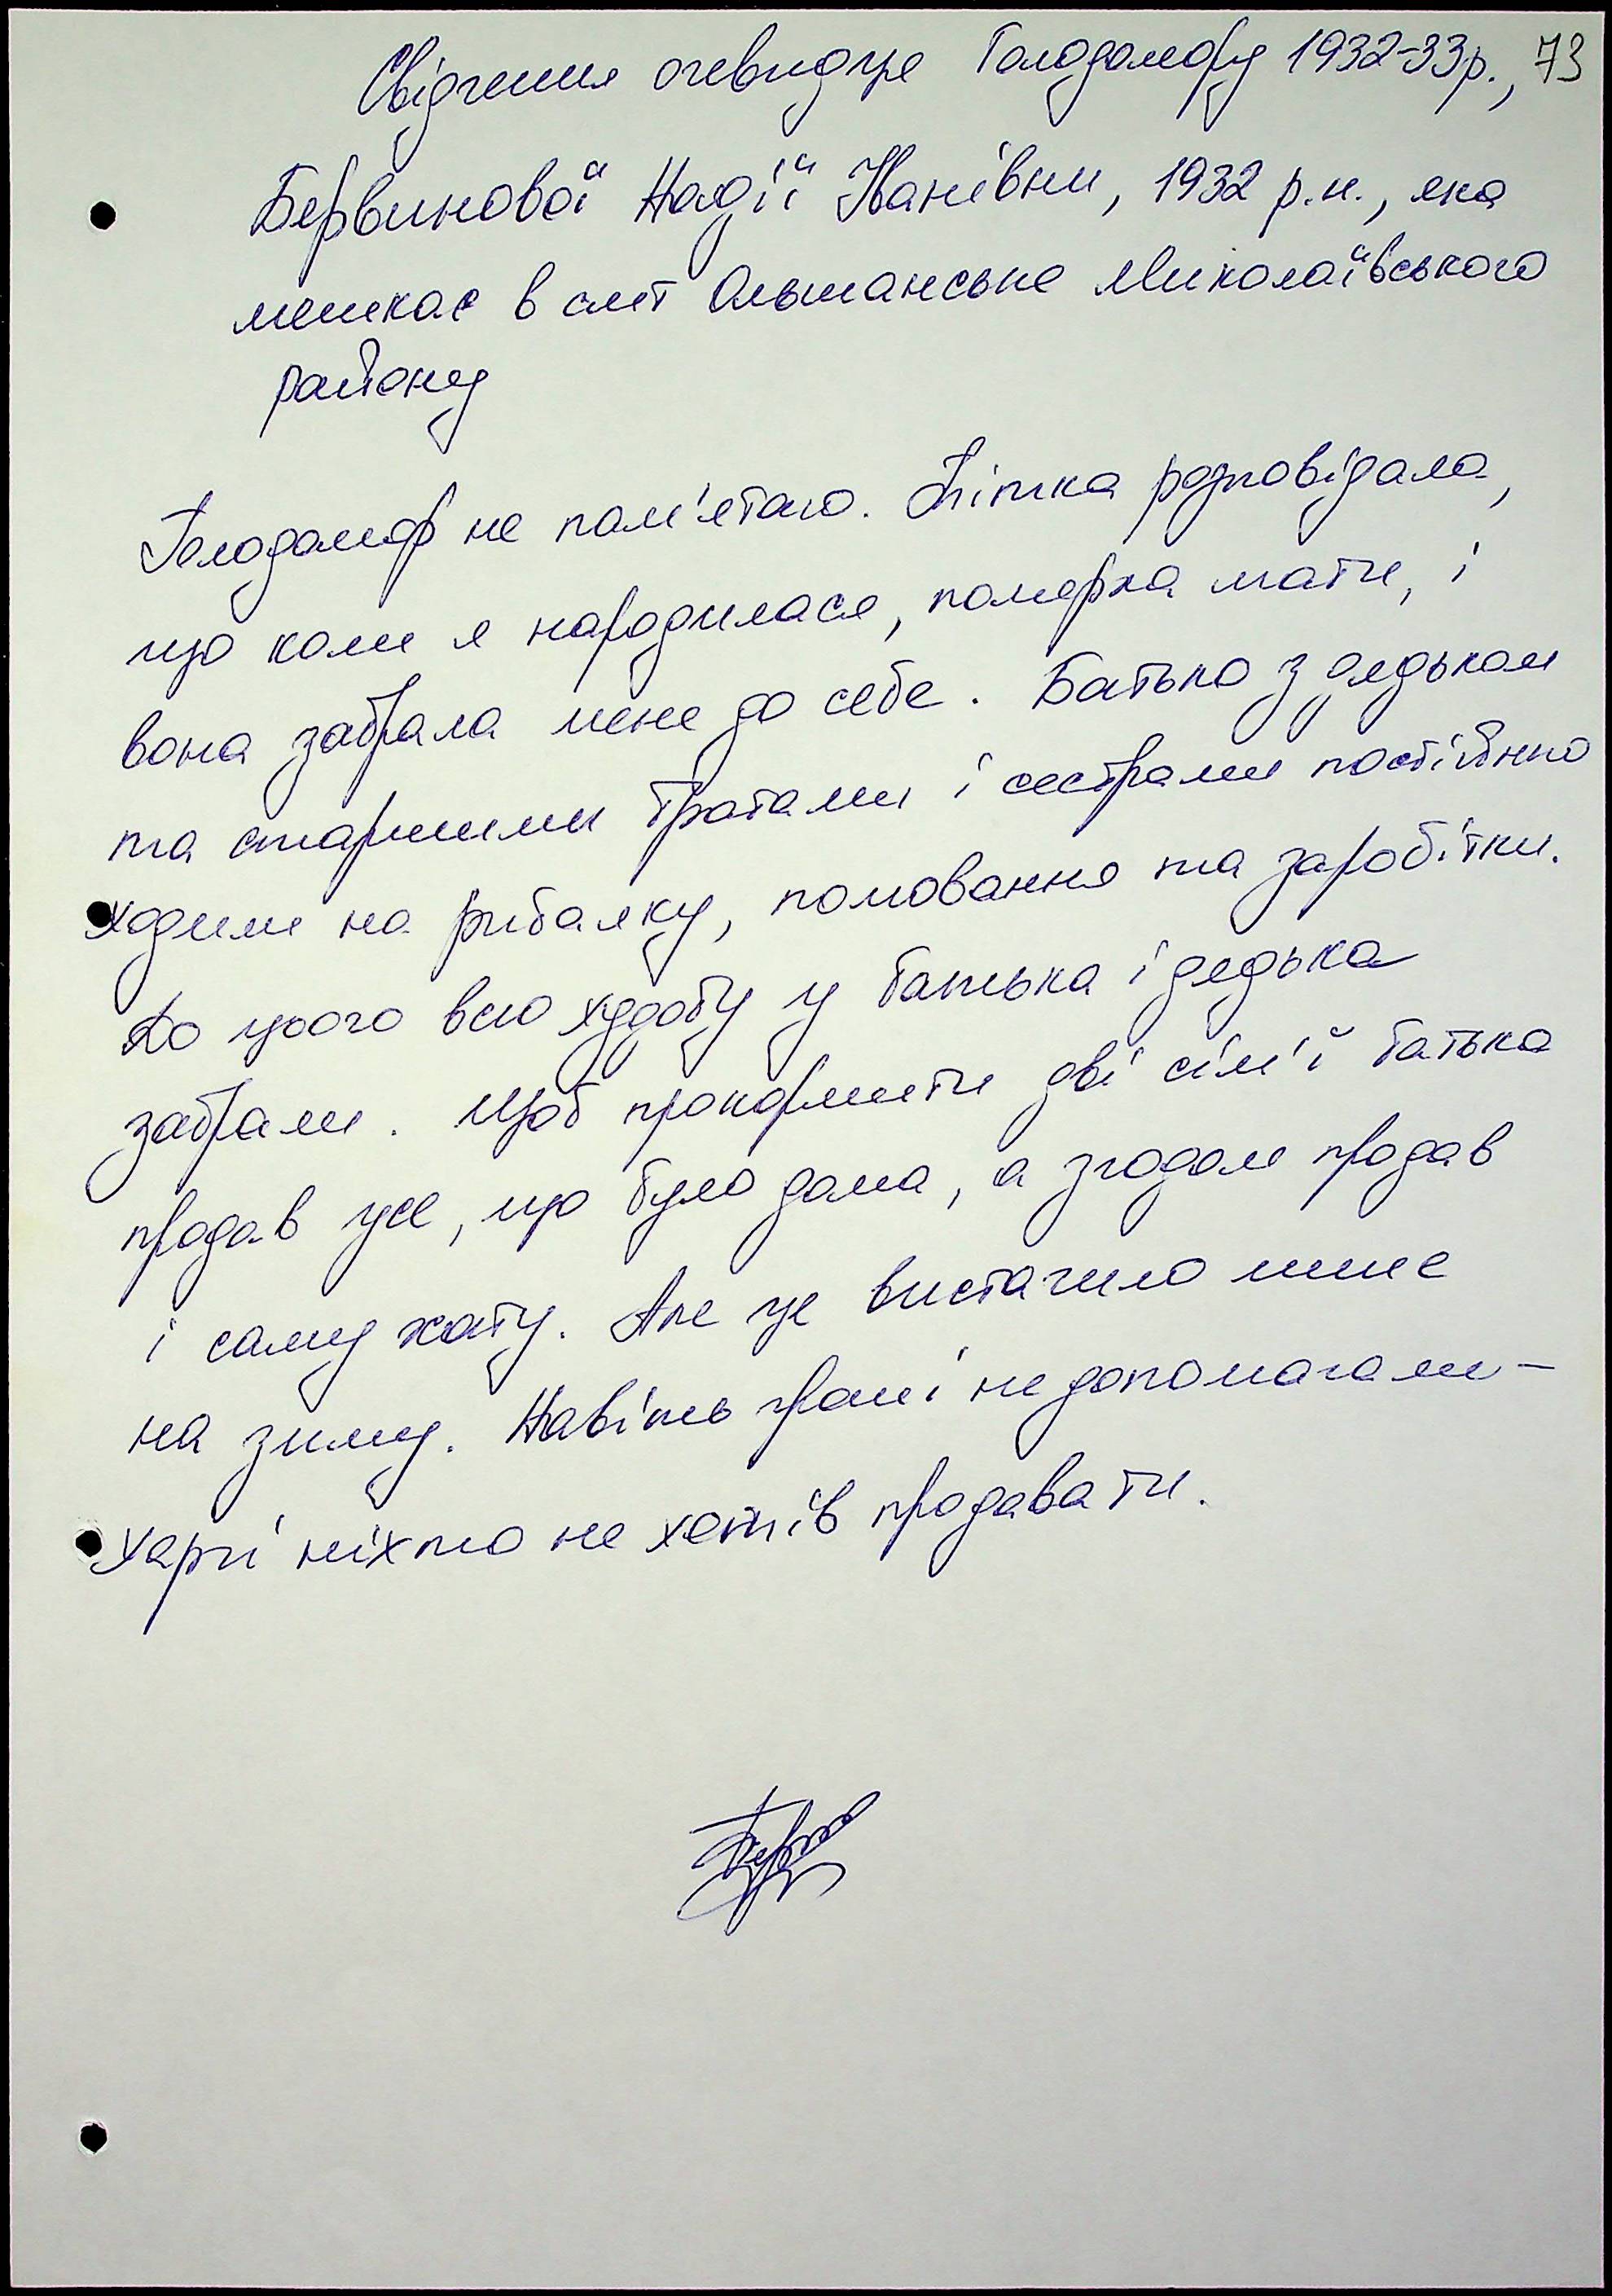 Свідчення очевидця Голодомору 1932-33р., 73
Бервинової Надії Іванівни, 1932 р.н., яка
мешкає в смт Ольшанське Миколаївського
району
Голодомор не пам'ятаю. Тітка розповідала,
що коли я народилася, померла мати, і
вона забрала мене до себе. Батько з дядьком
та старшими братами і сестрами постійно
ходили на рибалку, полювання та заробітки.
До цього всю худобу у батька і дядька
забрали. Щоб прокормити дві сім'ї батько
продав усе, що було дома, а згодом продав
і саму хату. Але це вистачило лише
на зиму. Навіть гроші не допомагали –
харчі ніхто не хотів продавати.